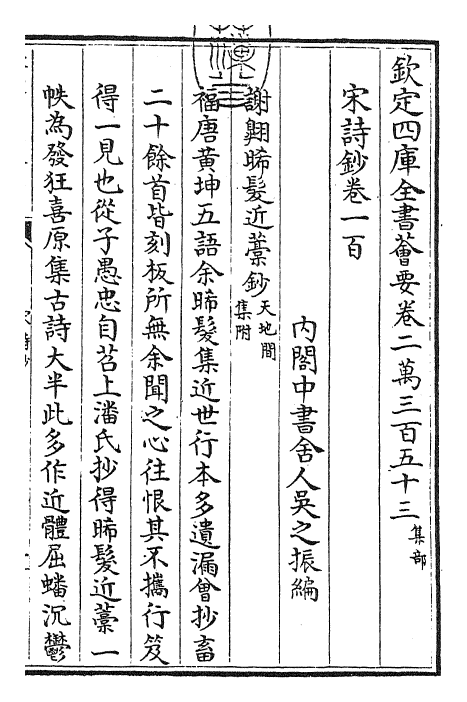 欽定四庫全書薈要卷二萬三百五十三 集部
宋詩鈔卷一百
內閣中書舍人吳之振編
謝翺晞髮近藁鈔 天地間集附
福唐黄坤五語余晞髮集近世行本多遺漏曾抄畜
二十餘首皆刻板所無余聞之心往恨其不攜行笈
得一見也從子愚忠自苕上潘氏抄得晞髮近藁一
帙為發狂喜原集古詩大半此多作近體屈蟠沉鬱